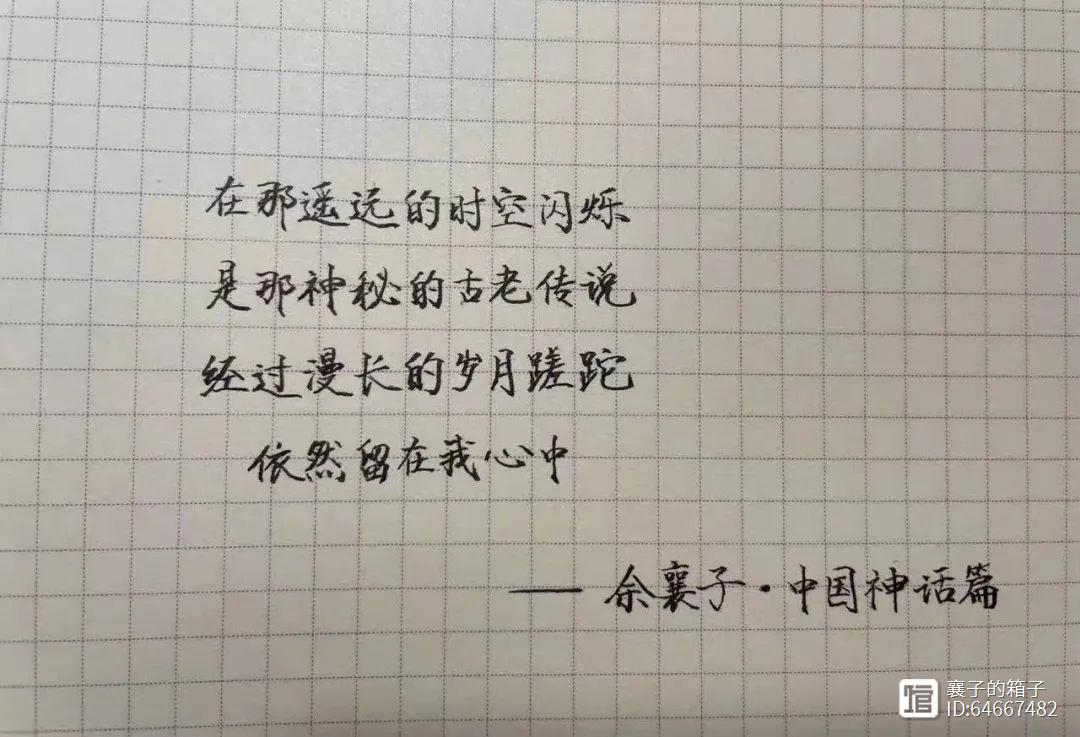 在那遥远的时空闪烁
是那神秘的古老传说
经过漫长的岁月蹉跎
依然留在我心中
—— 余襄子·中国神话篇
襄子的箱子
ID:64667482